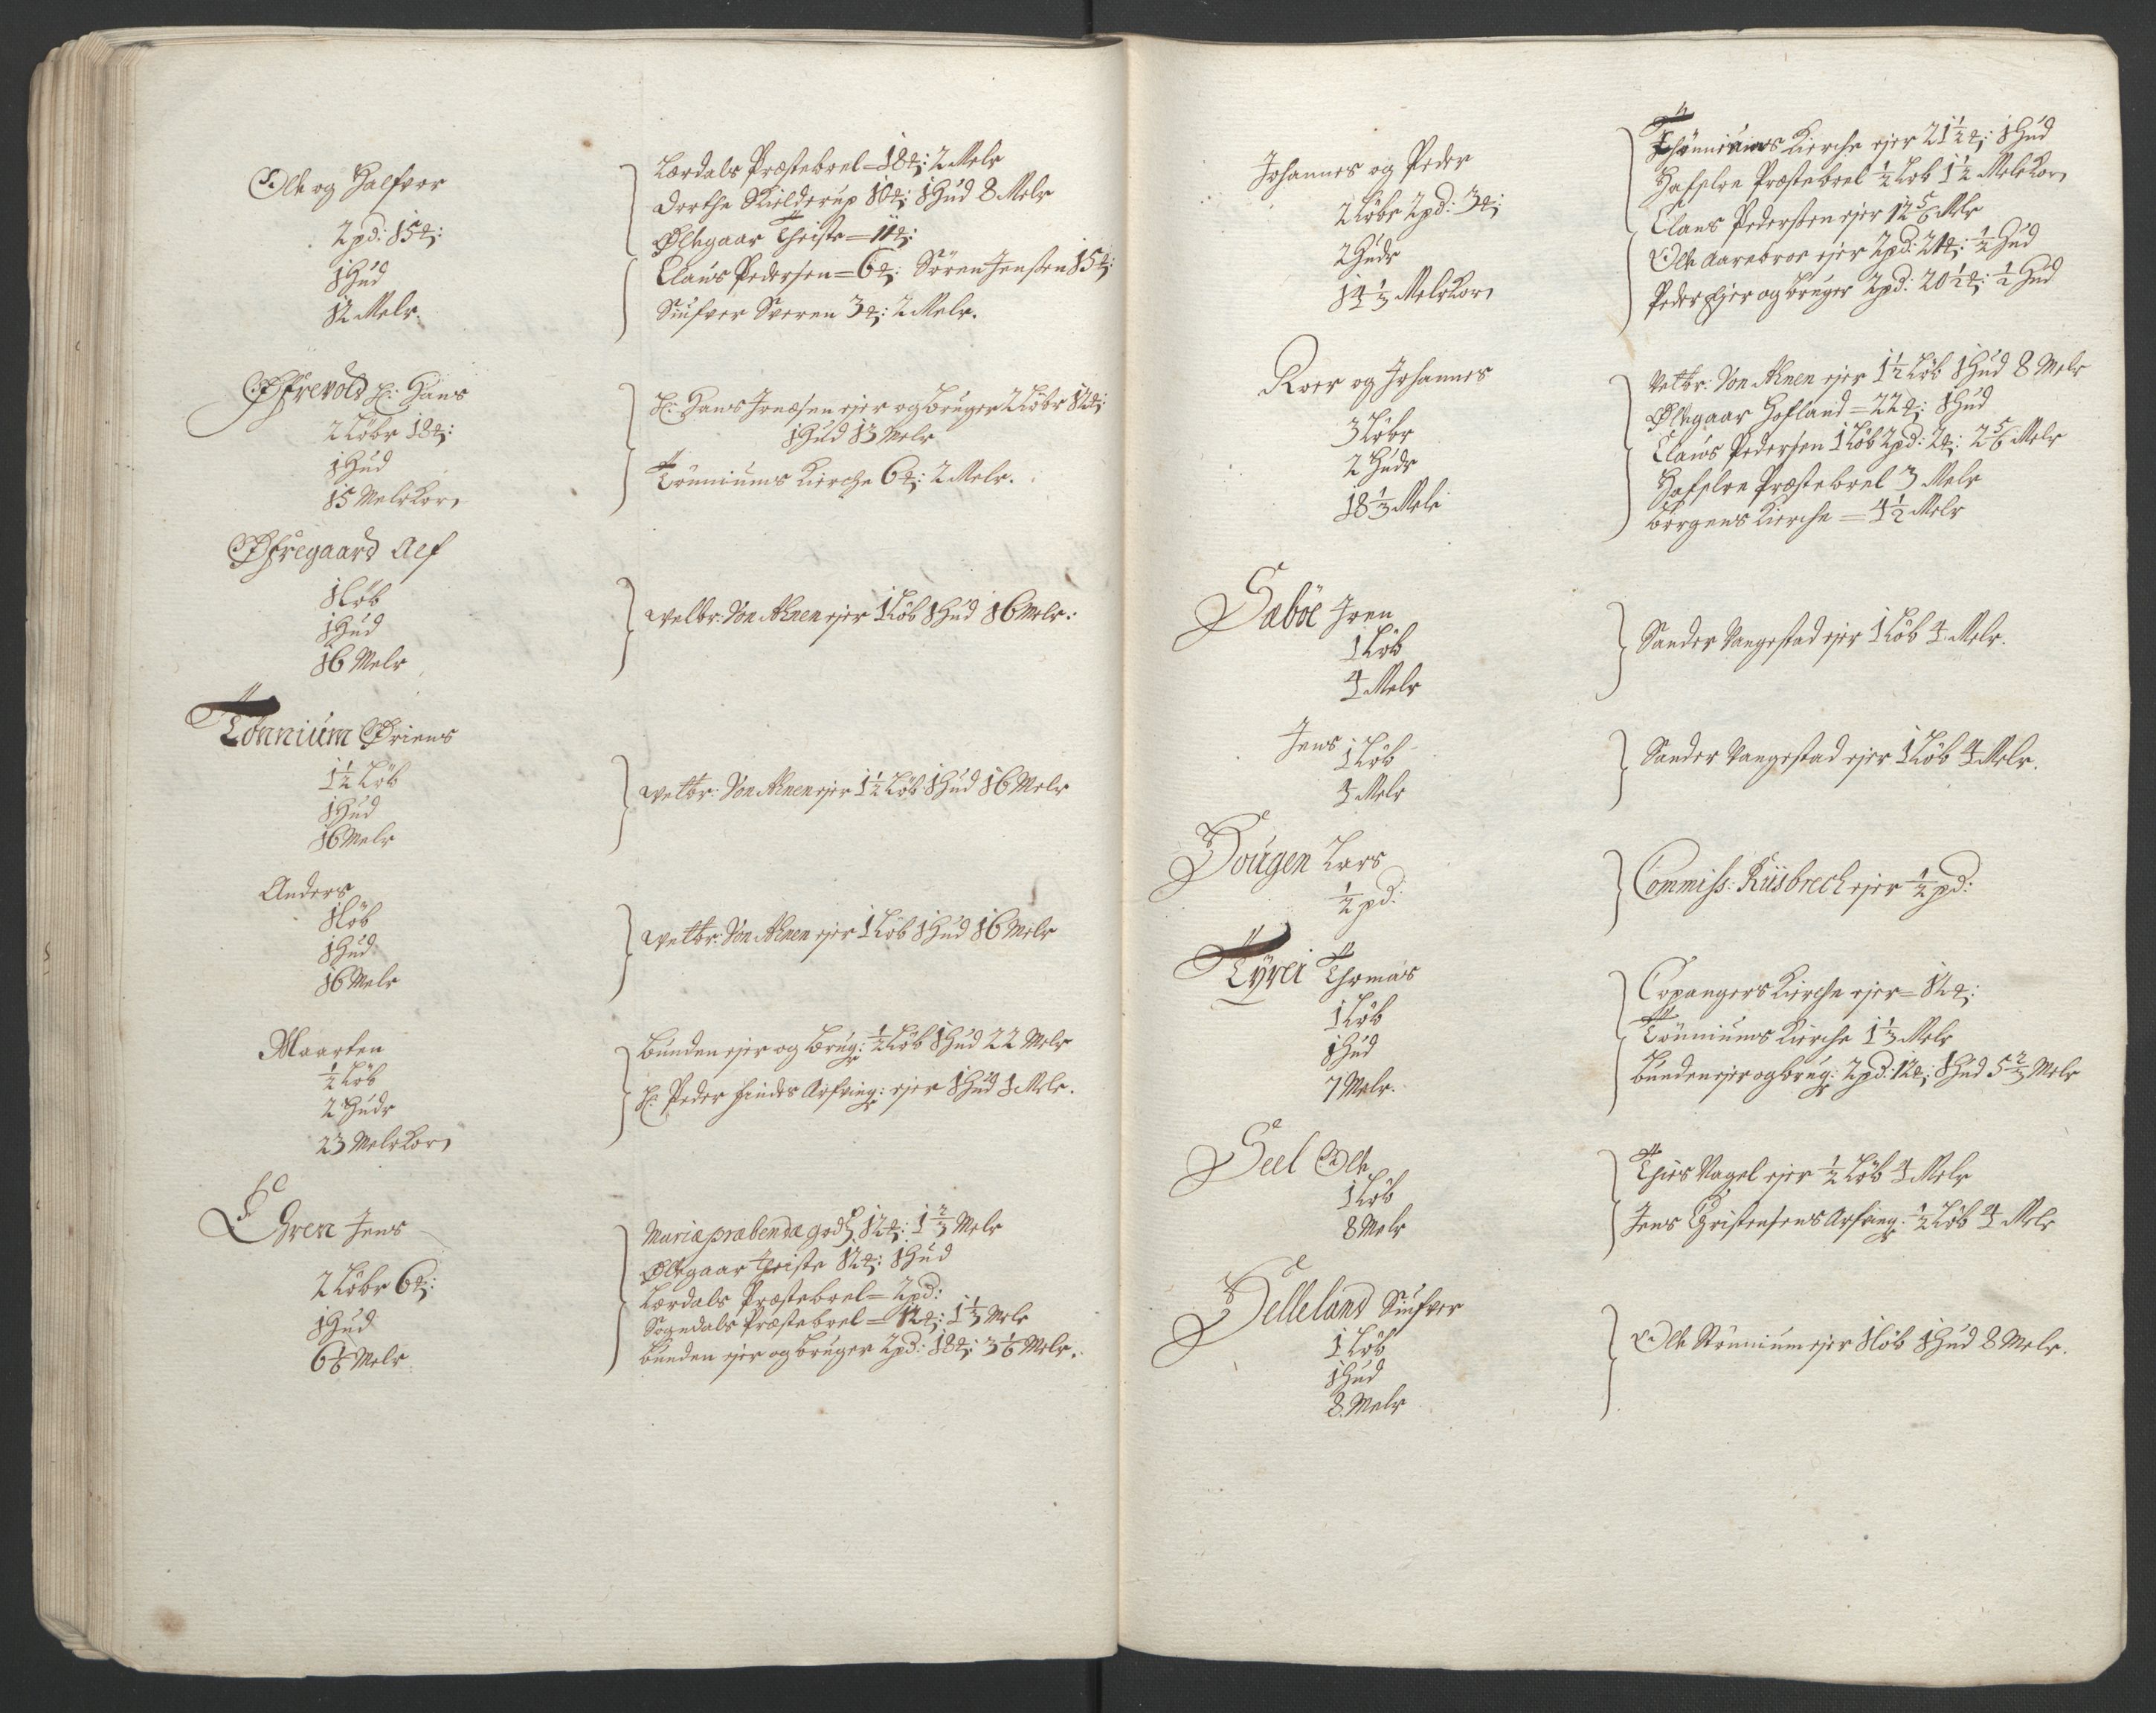 Ole og Halfvor
2 pd: 15 ℔:
1 Hud
12 Mele.
Lærdals Præsteboel = 18 ℔: 2 Mele
Dorthe Skielderup 10 ℔: 1 Hud 8 Mele
Ølegaar Theiste = 11 ℔:
Claus Pedersen = 6 ℔: Sören Jensen 15 ℔:
Siufver Sveren 3 ℔: 2 Mele.
Øfrevold Hr: Hans
2 Löbe 18 ℔:
1 Hud
15 Melekorn
Hr: Hans Jonæsen ejer og bruger 2 Löbe 12 ℔:
1 Hud 13 Mele
Tönniums Kierche 6 ℔: 2 Mele.
Øfregaard Alf
1 Löb
1 Hud
16 Mele
welbr: Von Ahnen ejer 1 Löb 1 Hud 16 Mele:
Tönnium Briens
1½ Löb
1 Hud
16 Mele
welbr: Von Ahnen ejer 1½ Löb 1 Hud 16 Mele
Anders
1 Löb
1 Hud
16 Mele
welbr: Von Ahnen ejer 1 Löb 1 Hud 16 Mele
Maarten
½ Löb
2 Hude
23 Melekorn
Bunden ejer og brug: ½ Löb 1 Hud 22 Mele
Hr: Peder Findes Arfving: ejer 1 Hud 1 Mele.
Eren Jens
2 Löbe 6 ℔:
1 Hud
6⅙ Mele
Mariæ præbende godß 12 ℔: 1⅔ Mele
Ølegaar Theiste 12 ℔: 1 Hud
Lærdals Præsteboel = 2 pd:
Sogndals Præsteboel = 12 ℔: 1⅓ Mele
Bunden ejer og bruger 2 pd: 18 ℔: 3⅙ Mele.
Johannes og Peder
2 Löbe 2 pd: 3 ℔:
2 Hude
14⅓ Melekorn
Tönniums Kierche ejer 21½ ℔: 1 Hud
Hafsloe Præsteboel ½ Löb 1½ Melekorn
Claus Pedersen ejer 12⅚ Mele
Ole Aarebroe ejer 2 pd: 21 ℔: ½ Hud
Peder Ejer og bruger 2 pd: 20½ ℔: ½ Hud
Roer og Johannes
3 Löbe
2 Hude
18⅓ Mele
Velbr: Von Ahnen ejer 1½ Löb 1 Hud 8 Mele
Ølegaar Hofland = 22 ℔: 1 Hud
Claus Pedersen 1 Löb 2 pd: 2 ℔: 2⅚ Mele
Hafsloe Præsteboel 3 Mele
Bergens Kierche = 4½ Mele
Sæböe Iven
1 Löb
4 Mele
Sander Vangestad ejer 1 Löb 4 Mele.
Jens
1 Löb
4 Mele
Sander Vangestad ejer 1 Löb 4 Mele.
Hougen Lars
½ pd:
Commiss: Riisbrech ejer ½ pd:
Tyrei Thomas
1 Löb
1 Hud
7 Mele.
Copangers Kierche ejer = 12 ℔:
Tönniums Kierche 1⅓ Mele
Bunden ejer og brug: 2 pd: 12 ℔: 1 Hud 5⅔ Mele
Seel Ole
1 Löb
8 Mele
Thies Nagel ejer ½ Löb 4 Mele
Jens Christensens Arfving: ½ Löb 4 Mele
Helleland Siufver
1 Löb
1 Hud
8 Mele
Ole Nönnium ejer 1 Löb 1 Hud 8 Mele.